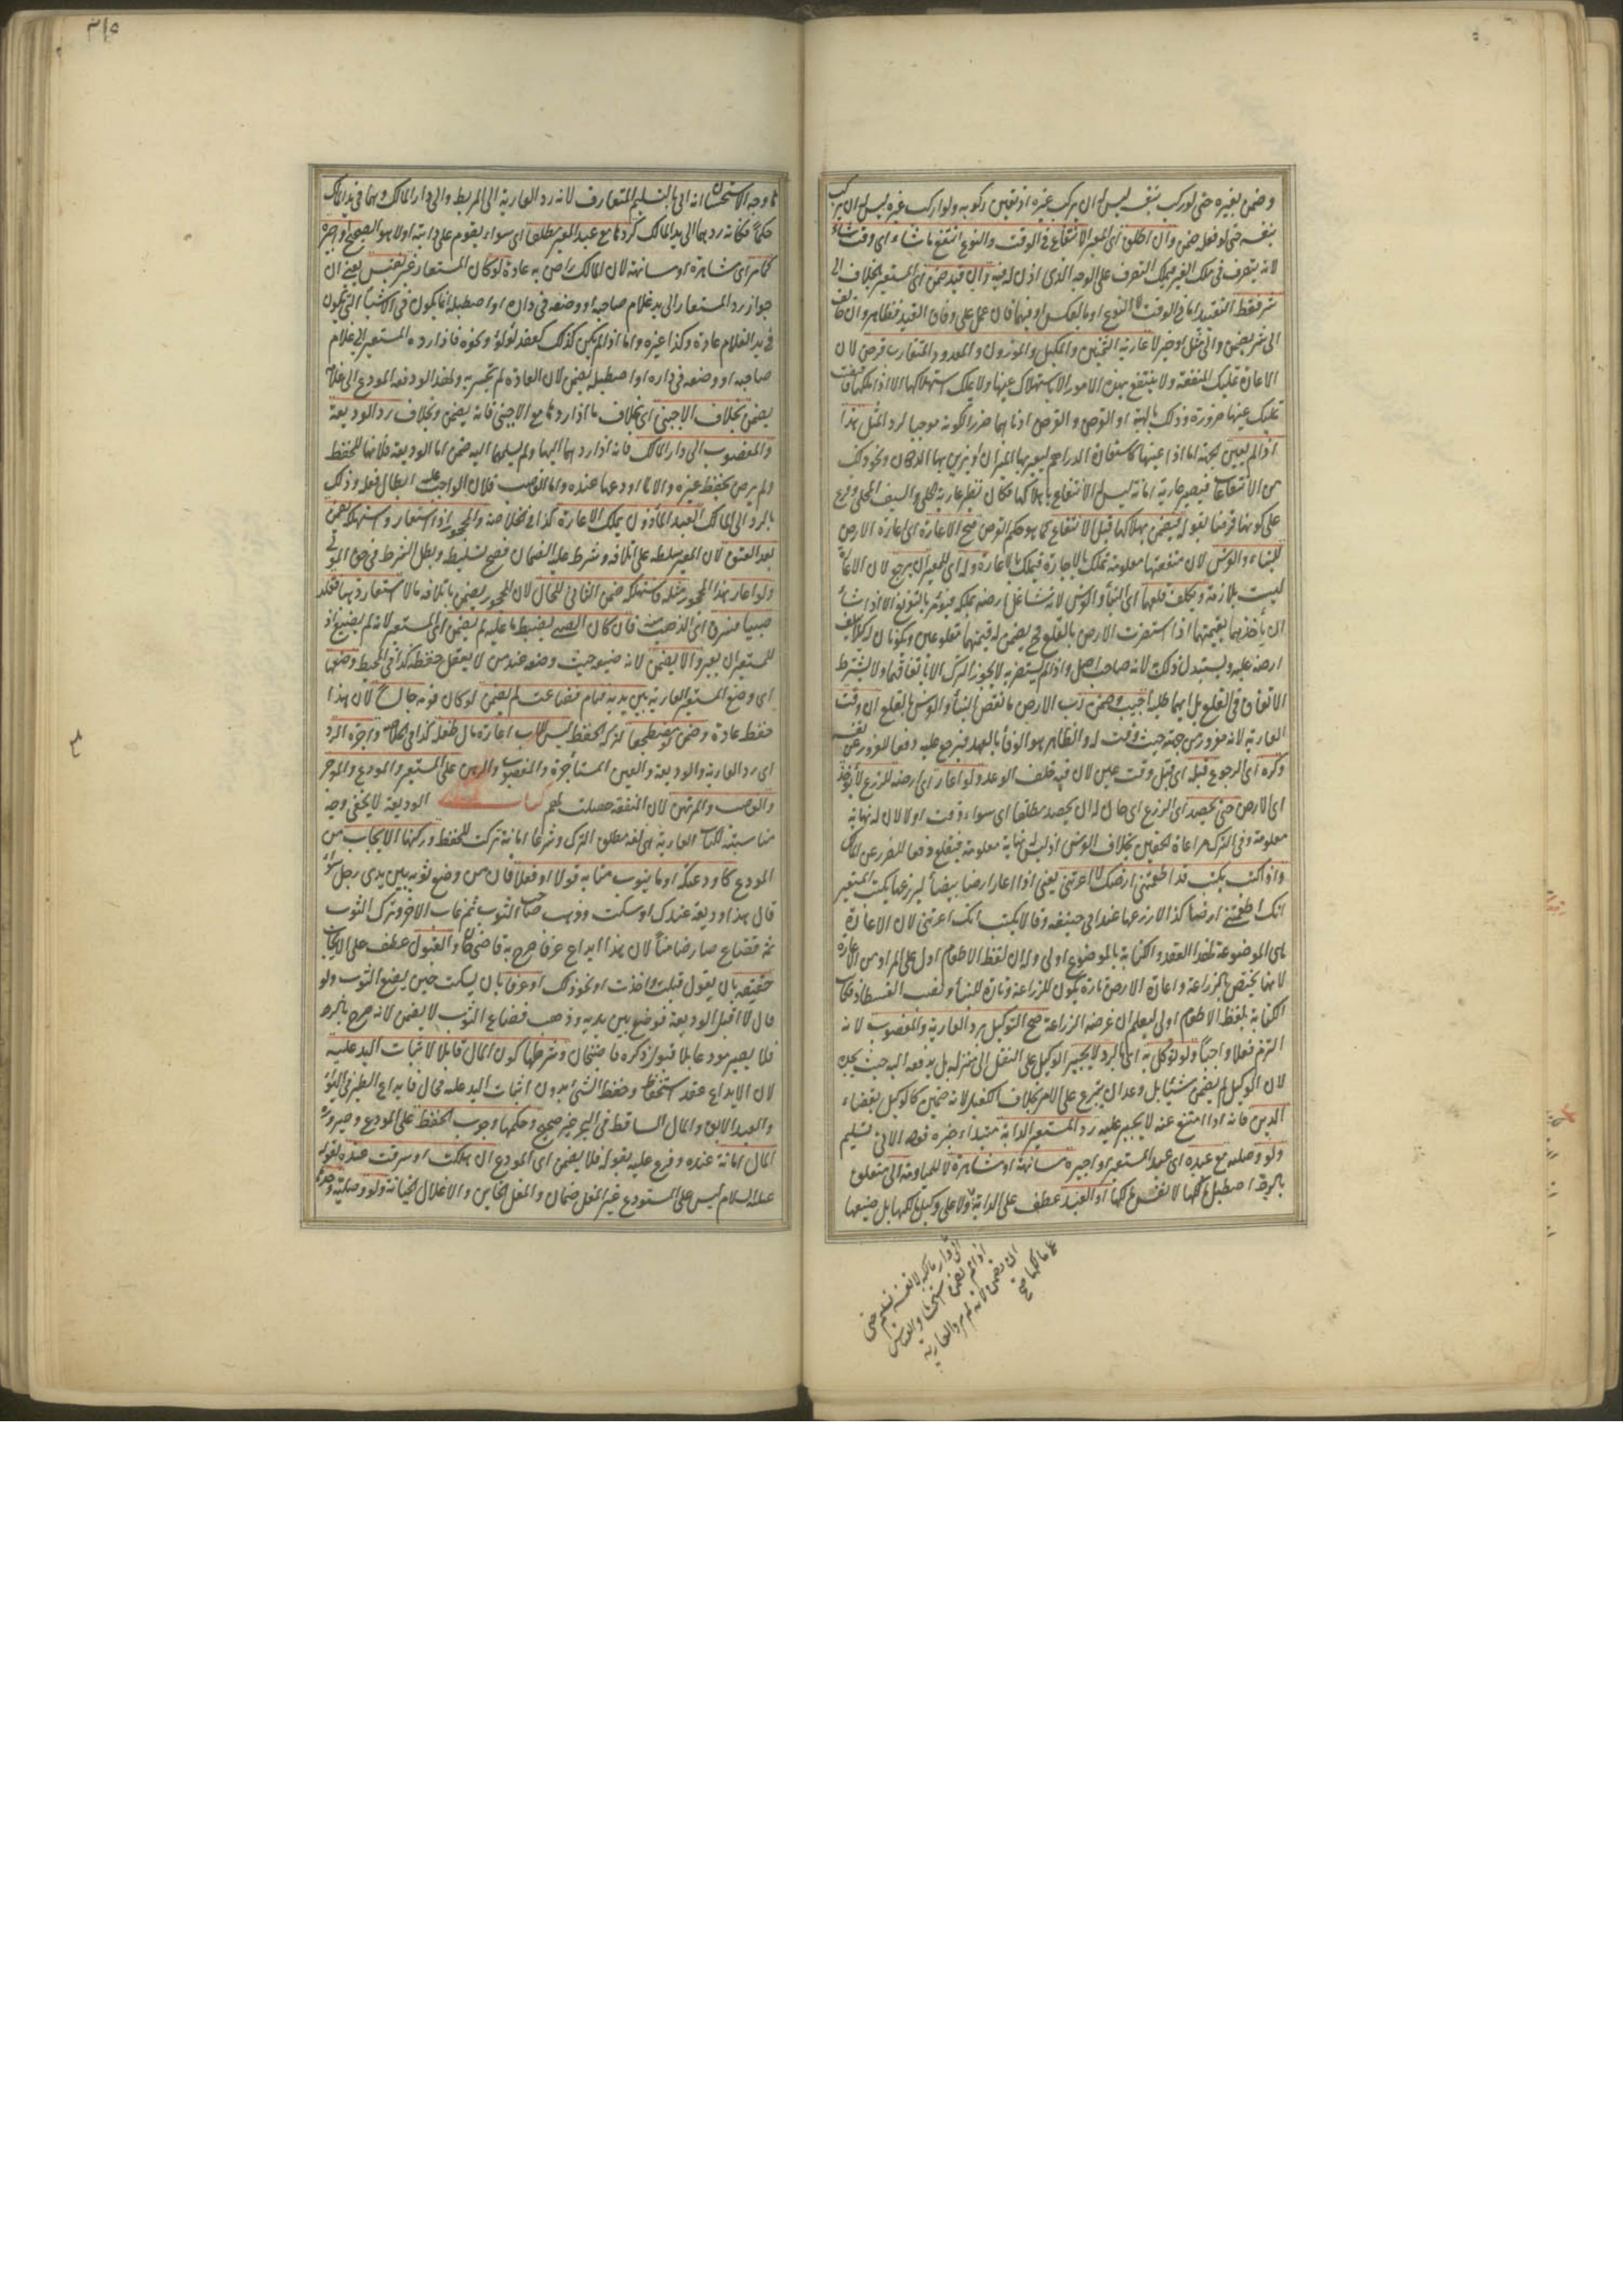 وضمن بغيره حتى لو ركب بنفسه ليس له ان يركب غيره اذ تعين ركوبه ولو اركب غيره ليس له ان يركب
بنفسه حتى لو فعله ضمن وان اطلق اى المعير الانتفاع فى الوقت والنوع انتفع ما شاء اى وقت شاء
لانه يتصرف فى ملك الغير فيملك التصرف على الوجه الذى اذن له فيه وان قيد ضمن اى المستعير بالخلاف الى
شر فقط التقييد اما فى الوقت لا النوع او بالعكس او فيهما فان عمل على وفاق القيد فظاهر وان خالف
الى شر يضمن والى مثل او خير لا عارية الثمنين والمكيل والموزون والمعدود المتقارب قرض لان
الاعارة تمليك المنفعة ولا ينتفع بهذه الامور الا باستهلاك عينها ولا يملك استهلاكها الا اذا ملكها فاقتضت
تمليك عينها ضرورة وذلك بالهبة او القرض والقرض ادناهما ضررا لكونه موجبا لرد المثل هذا
اذا لم يعين لجهة اما اذا عينها كاستعارة الدراهم ليعير بها الميزان او يزين بها الدكان ونحو ذلك
من الانتفاعات فيصير عارية امانة ليس له الانتفاع باهلاكها فكان نظير عارية الحلى والسيف المحلى وفرع
على كونها قرضا بقوله فيضمن بهلاكها قبل الانتفاع كما هو حكم القرض صح الاعارة اى اعارة الارض
للبناء والغرس لان منفعتها معلومة تملك بالاجارة فتملك بالاعارة وله اى للمعير ان يرجع لان الاعارة
ليست بلازمة وتكلف قلعهما اى البناء والغرس لانه شاغل ارضه بملكه فيؤمر بالتفريغ الا اذا شاء
ان يأخذهما بقيمتهما اذا استضرت الارض بالقلع فح يضمن له قيمتهما مقلوعين ويكونان له كيلا يتلف
ارضه عليه ويستبد له ذلك لانه صاحب اصل واذا لم يستضر به لا يجوز الترك الا باتفاقهما ولا يشترط
الاتفاق فى القلع بل ايهما طلبه اجيب وضمن رب الارض ما نقص البناء والغرس بالقلع ان وقت
العارية لانه مغرور من جهته حيث وقت له والظاهر هو الوفاء بالعهد فيرجع عليه دفعا للغرور عن نفسه
وكره اى الرجوع قبله اى قبل وقت عين لان فيه خلف الوعد ولو اعار اى ارضه للزرع لا يؤخذ
اى الارض حتى يحصد اى الزرع اى حان له ان يحصد مطلقا اى سواء وقت او لا لان له نهاية
معلومة وفى الترك مراعاة الحقين بخلاف الغرس اذ ليس له نهاية معلومة فيقلع دفعا للضرر عن المالك
واذا كتب يكتب قد اطعمتنى ارضك لا اعرتنى يعنى اذا اعار ارضا بيضاء ليزرعها يكتب المستعير
انك اطعمتنى ارضا كذا لازرعها عند ابى حنيفة وقالا يكتب انك اعرتنى لان الاعارة
هى الموضوعة لهذا العقد والكتابة بالموضوع اولى وله ان لفظ الاطعام ادل على المراد من الاعارة
لانها تختص بالزراعة واعارة الارض تارة تكون للزراعة وتارة للبناء ونصب الفسطاط فكانت
الكتابة بلفظ الاطعام اولى ليعلم ان غرضه الزراعة صح التوكيل برد العارية والمغصوب لانه
التزم فعلا واجبا ولو وكل به اى بالرد لا يجبر الوكيل على النقل الى منزله بل يدفعه اليه حيث يجده
لان الوكيل لم يضمن شيئا بل وعد ان يتبرع على الامر بخلاف الكفيل لانه ضمين كالوكيل بقضاء
الدين فانه اذا امتنع عنه لا يجبر عليه رد المستعير الدابة مبتداء خبره قوله الاتى تسليم
ولو وصلية مع عبده اى عبد المستعير او اجيره مسانهة او مشاهرة لا للمياومة الى متعلق
بالرد اصطبل مالكها لا نفس مالكها او العبد عطف على الدابة ولا على وكيل مالكها بل ضيعها
الى دار مالكه لا نفسه تسليم حتى
اذا لم يضمن استحسانا والقياس
ان يضمن لانه لم يرد العارية
على مالكها صح
٣١٥
كما وجه الاستحسان انه اتى بالتسليم المتعارف لانه رد العارية الى المربط والى دار المالك وهما فى يد المالك
حكما فكانه ردهما الى يد المالك كردها مع عبد المعير مطلقا اى سواء يقوم على دابته او لا هو الصحيح او اجيره
كما مر اى مشاهرة او مسانهة لان المالك راض به عادة لو كان المستعار غير نفيس يعنى ان
جواز رد المستعار الى يد غلام صاحبه او وضعه فى داره او اصطبله انما يكون فى الاشياء التى تكون
فى يد الغلام عادة وكذا غيره واما اذا لم يكن كذلك كعقد لؤلؤ ونحوه فاذا رده المستعير الى غلام
صاحبه او وضعه فى داره او اصطبله يضمن لان العادة لم تجر به ولهذا لو دفعه المودع الى غلامه
يضمن بخلاف الاجنبى اى بخلاف ما اذا ردها مع الاجنبى فانه يضمن وبخلاف رد الوديعة
والمغصوب الى دار المالك فانه اذا ردهما اليها ولم يسلمها اليه ضمن اما الوديعة فلانها للحفظ
ولم يرض بحفظ غيره والا لما اودعها عنده واما الغصب فلان الواجب عليه ابطال فعله وذلك
بالرد الى المالك العبد المأذون يملك الاعارة كذا فى الخلاصة والمحجور اذا استعار واستهلك يضمن
بعد العتق لان المعير سلطه على اتلافه وشرط عليه الضمان فصح تسليطه وبطل الشرط فى حق المولى
ولو اعار هذا المحجور مثله فاستهلكه ضمن الثانى للحال لان المحجور يضمن باتلافه مالا استعار ذهبا فقلد
صبيا فسرق اى الذهب منه فان كان الصبى يضبط ما عليه لم يضمن اى المستعير لانه لم يضيع اذ
للمستعير ان يعير والا يضمن لانه ضيعه حيث وضعه عند من لا يعقل حفظه كذا فى المحيط وضعها
اى وضع المستعير العارية بين يديه فنام فضاعت لم يضمن لو كان نومه جالسا لان هذا
حفظ عادة وضمن لو مضطجعا لتركه الحفظ ليس للاب اعارة مال طفله كذا فى الخلاصة واجرة الرد
اى رد العارية والوديعة والعين المستأجرة والمغصوب والرهن على المستعير والمودع والموجر
والغاصب والمرتهن لان المنفعة حصلت لهم كتاب الوديعة لا يخفى وجه
مناسبته لكتاب العارية هى لغة مطلق الترك وشرعا امانة تركت للحفظ وركنها الايجاب من
المودع كاودعتك او ما ينوب منابه قولا او فعلا فان من وضع ثوبه بين يدى رجل سواء
قال هذا وديعة عندك او سكت وذهب صاحب الثوب ثم غاب الاخر وترك الثوب
ثمة فضاع صار ضامنا لان هذا ايداع عرفا صرح به قاضيخان والقبول عطف على الايجاب
حقيقة بان يقول قبلت واخذت او نحو ذلك او عرفا بان يسكت حين يضع الثوب ولو
قال لا اقبل الوديعة فوضع بين يديه وذهب فضاع الثوب لا يضمن لانه صرح بالرد
فلا يصير مودعا بلا قبول ذكره قاضيخان وشرطها كون المال قابلا لاثبات اليد عليه
لان الايداع عقد استحفاظ وحفظ الشىء بدون اثبات اليد عليه محال فايداع الطير فى الهواء
والعبد الابق والمال الساقط فى البحر غير صحيح وحكمها وجوب الحفظ على المودع وصيرورة
المال امانة عنده وفرع عليه بقوله فلا يضمن اى المودع ان هلكت او سرقت عنده لقوله
عليه السلام ليس على المستودع غير المغل ضمان والمغل الخاين والاغلال الخيانة ولو وصلية وحدها